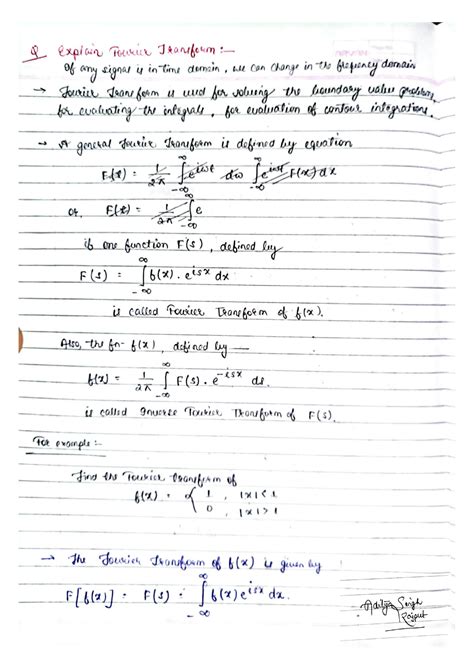 Q Explain Fourier Transform :—
If any signal is in time domain, we can change in the frequency domain
→ Fourier Transform is used for solving the boundary value problem,
for evaluating the integrals, for evaluation of contour integrations.
→ A general Fourier Transform is defined by equation
F(t) = 1/2π ∫_{-∞}^{∞} e^{iωt} dω ∫_{-∞}^{∞} F(x) dx
or, F(t) = 1/2π ∫_{-∞}^{∞} e
if one function F(s), defined by
F(s) = ∫_{-∞}^{∞} f(x). e^{isx} dx
is called Fourier Transform of f(x).
Also, the fn- f(x), defined by —
f(x) = 1/2π ∫_{-∞}^{∞} F(s). e^{-isx} ds.
is called Inverse Fourier Transform of F(s).
For example :-
Find the Fourier transform of
f(x) = { 1 , |x| < 1
0 , |x| > 1
→ The Fourier Transform of f(x) is given by
F[f(x)] = F(s) = ∫_{-∞}^{∞} f(x) e^{isx} dx.
Aditya Singh
Rajput